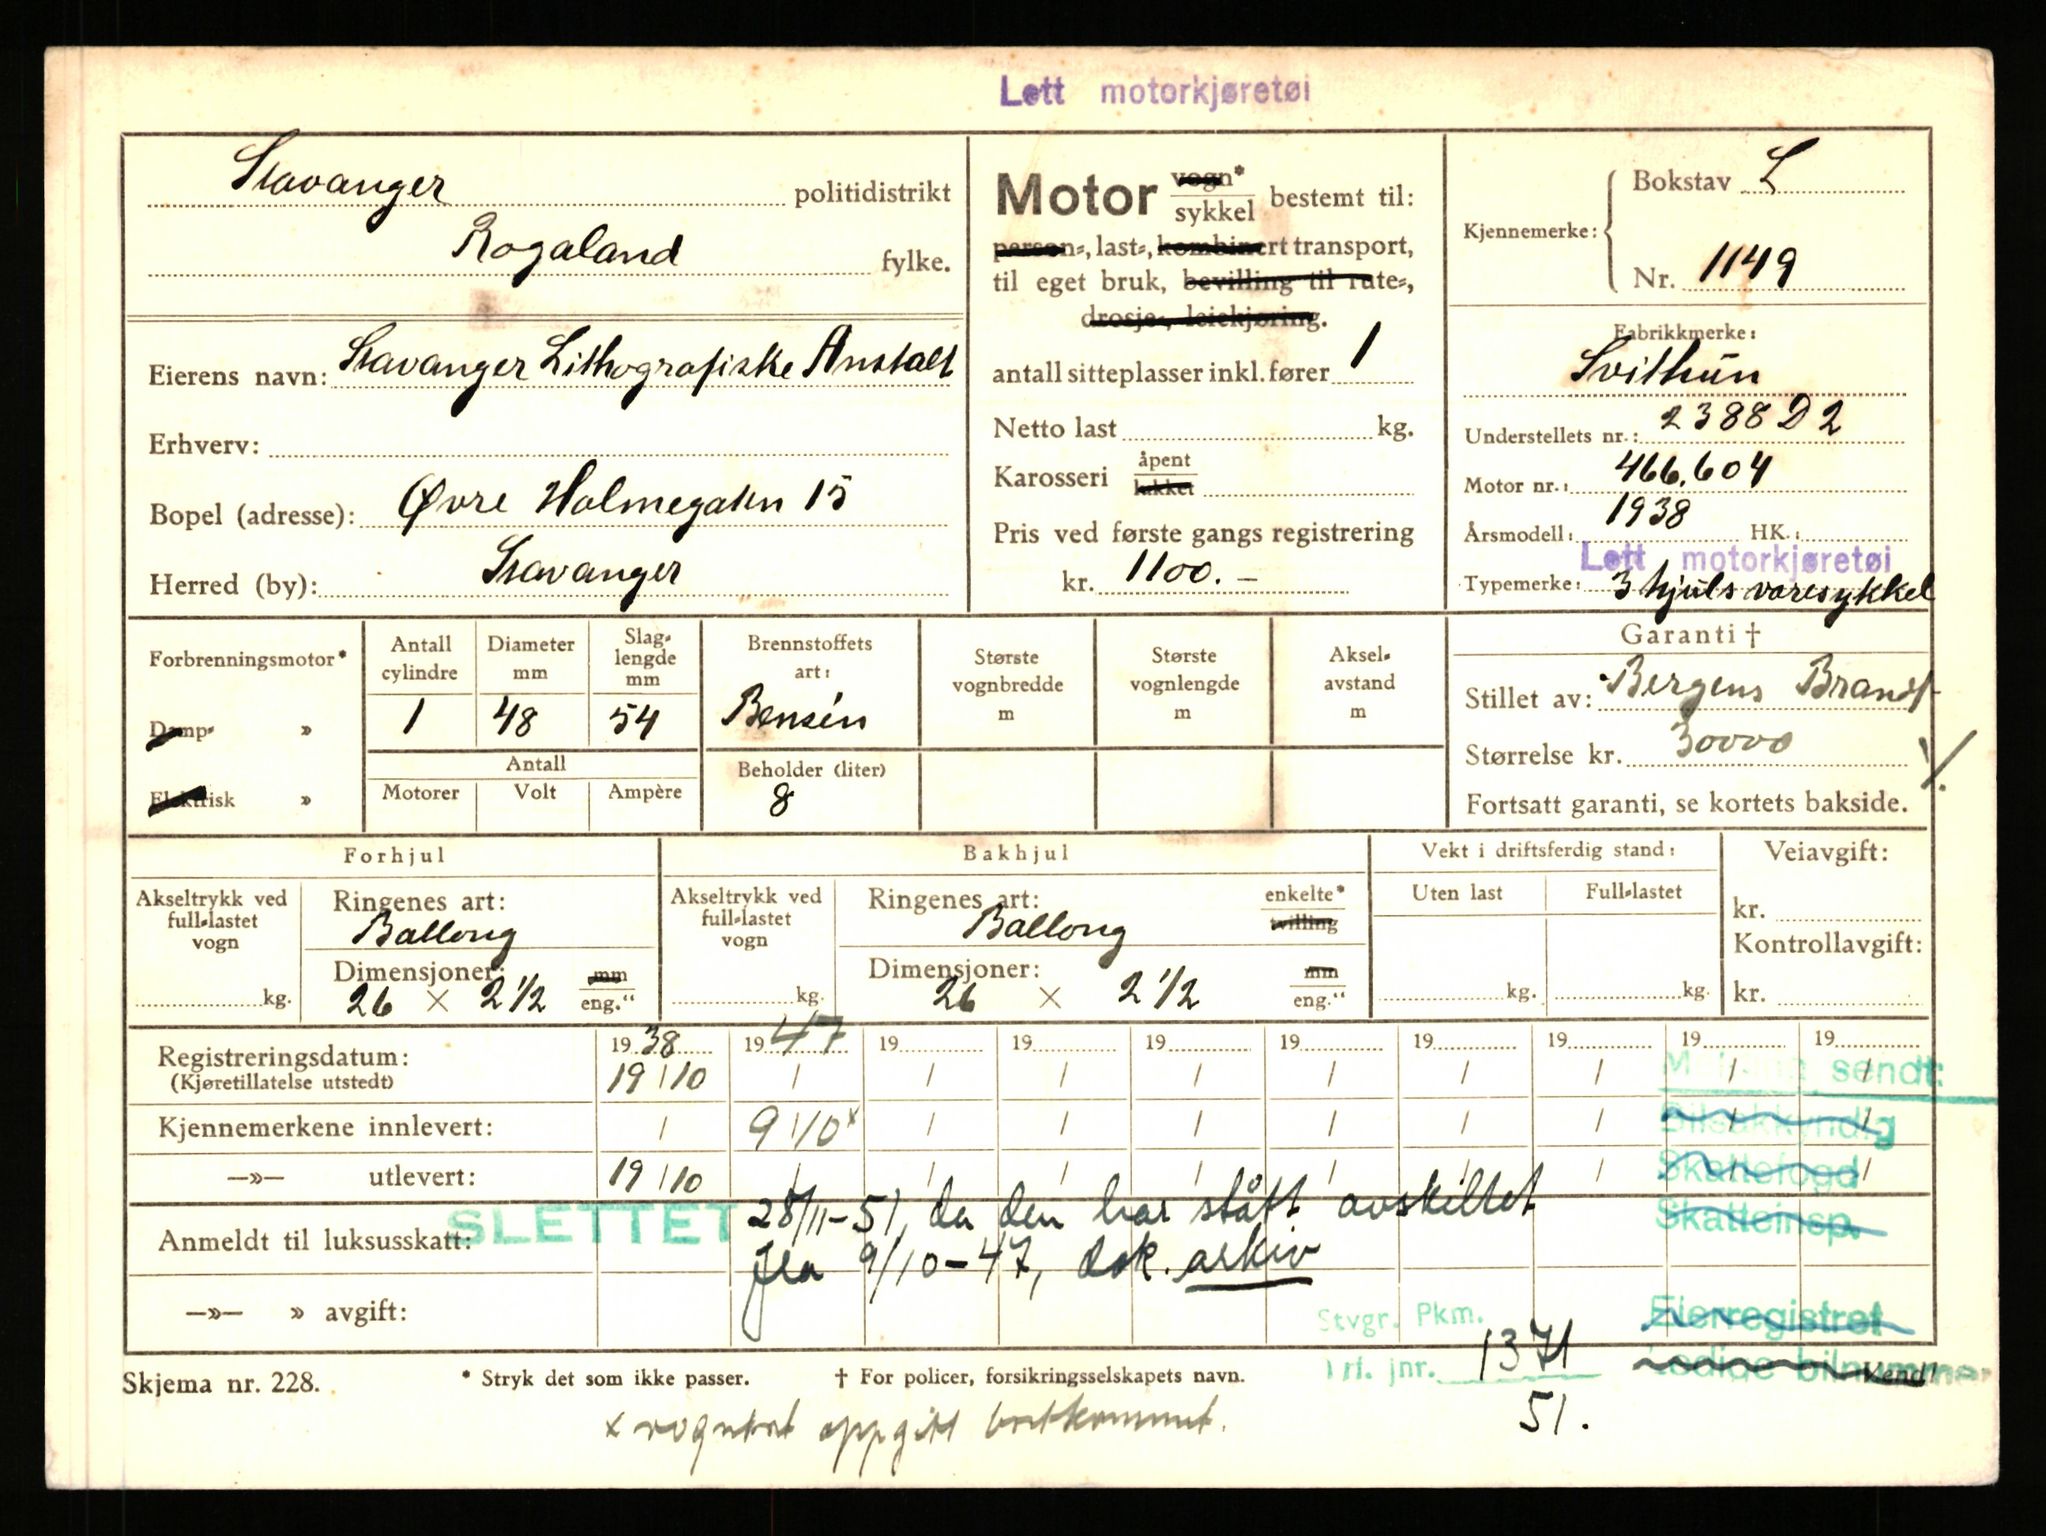 Lett motorkjøretøi
Stavanger politidistrikt
Rogaland fylke.
Eierens navn: Stavanger Lithografiske Anstalt
Erhverv:
Bopel (adresse): Øvre Holmegaten 15
Herred (by): Stavanger
Motor vogn* sykkel bestemt til:
person-, last-, kombinert transport,
til eget bruk, bevilling til rute-,
drosje-, leiekjøring.
antall sitteplasser inkl. fører 1
Netto last kg.
Karosseri åpent lukket
Pris ved første gangs registrering
kr. 1100.-
Kjennemerke: Bokstav L
Nr. 1149
Fabrikkmerke:
Svithun
Understellets nr.: 2388 D2
Motor nr.: 466.604
Årsmodell: 1938 HK.:
Lett motorkjøretøi
Typemerke: 3 hjuls varesykkel
Forbrenningsmotor*
Damp- »
Elektrisk »
Antall cylindre
1
Diameter mm
48
Slag-lengde mm
54
Antall
Motorer Volt Ampère
Brennstoffets art:
Bensin
Beholder (liter)
8
Største vognbredde m
Største vognlengde m
Aksel-avstand m
Garanti †
Stillet av: Bergens Brand
Størrelse kr. 30000
Fortsatt garanti, se kortets bakside.
Forhjul
Akseltrykk ved full-lastet vogn
kg.
Ringenes art:
Ballong
Dimensjoner: mm
26 × 2 1/2 eng."
Bakhjul
Akseltrykk ved full-lastet vogn
kg.
Ringenes art: enkelte*
Ballong tvilling
Dimensjoner: mm
26 × 2 1/2 eng."
Vekt i driftsferdig stand:
Uten last Full-lastet
kg. kg.
Veiavgift:
kr.
Kontrollavgift:
kr.
19 38 19 47 19 19 19 19 19 19 19 19
Registreringsdatum: 19/10
(Kjøretillatelse utstedt)
Kjennemerkene innlevert: 9/10 x
—»— utlevert: 19/10
Anmeldt til luksusskatt:
—»— » avgift:
SLETTET 28/11-51, da den har stått avskiltet
fra 9/10-47, dok. arkiv
sendt:
Bilsakkyndig
Skattefogd
Skatteinsp.
Eierregistret
Ledige bilnummer
Stvgr. Pkm.
Trf. jnr. 1371
51.
Skjema nr. 228.
* Stryk det som ikke passer.
† For policer, forsikringsselskapets navn.
Vend!
x vognkort oppgitt bortkommet.